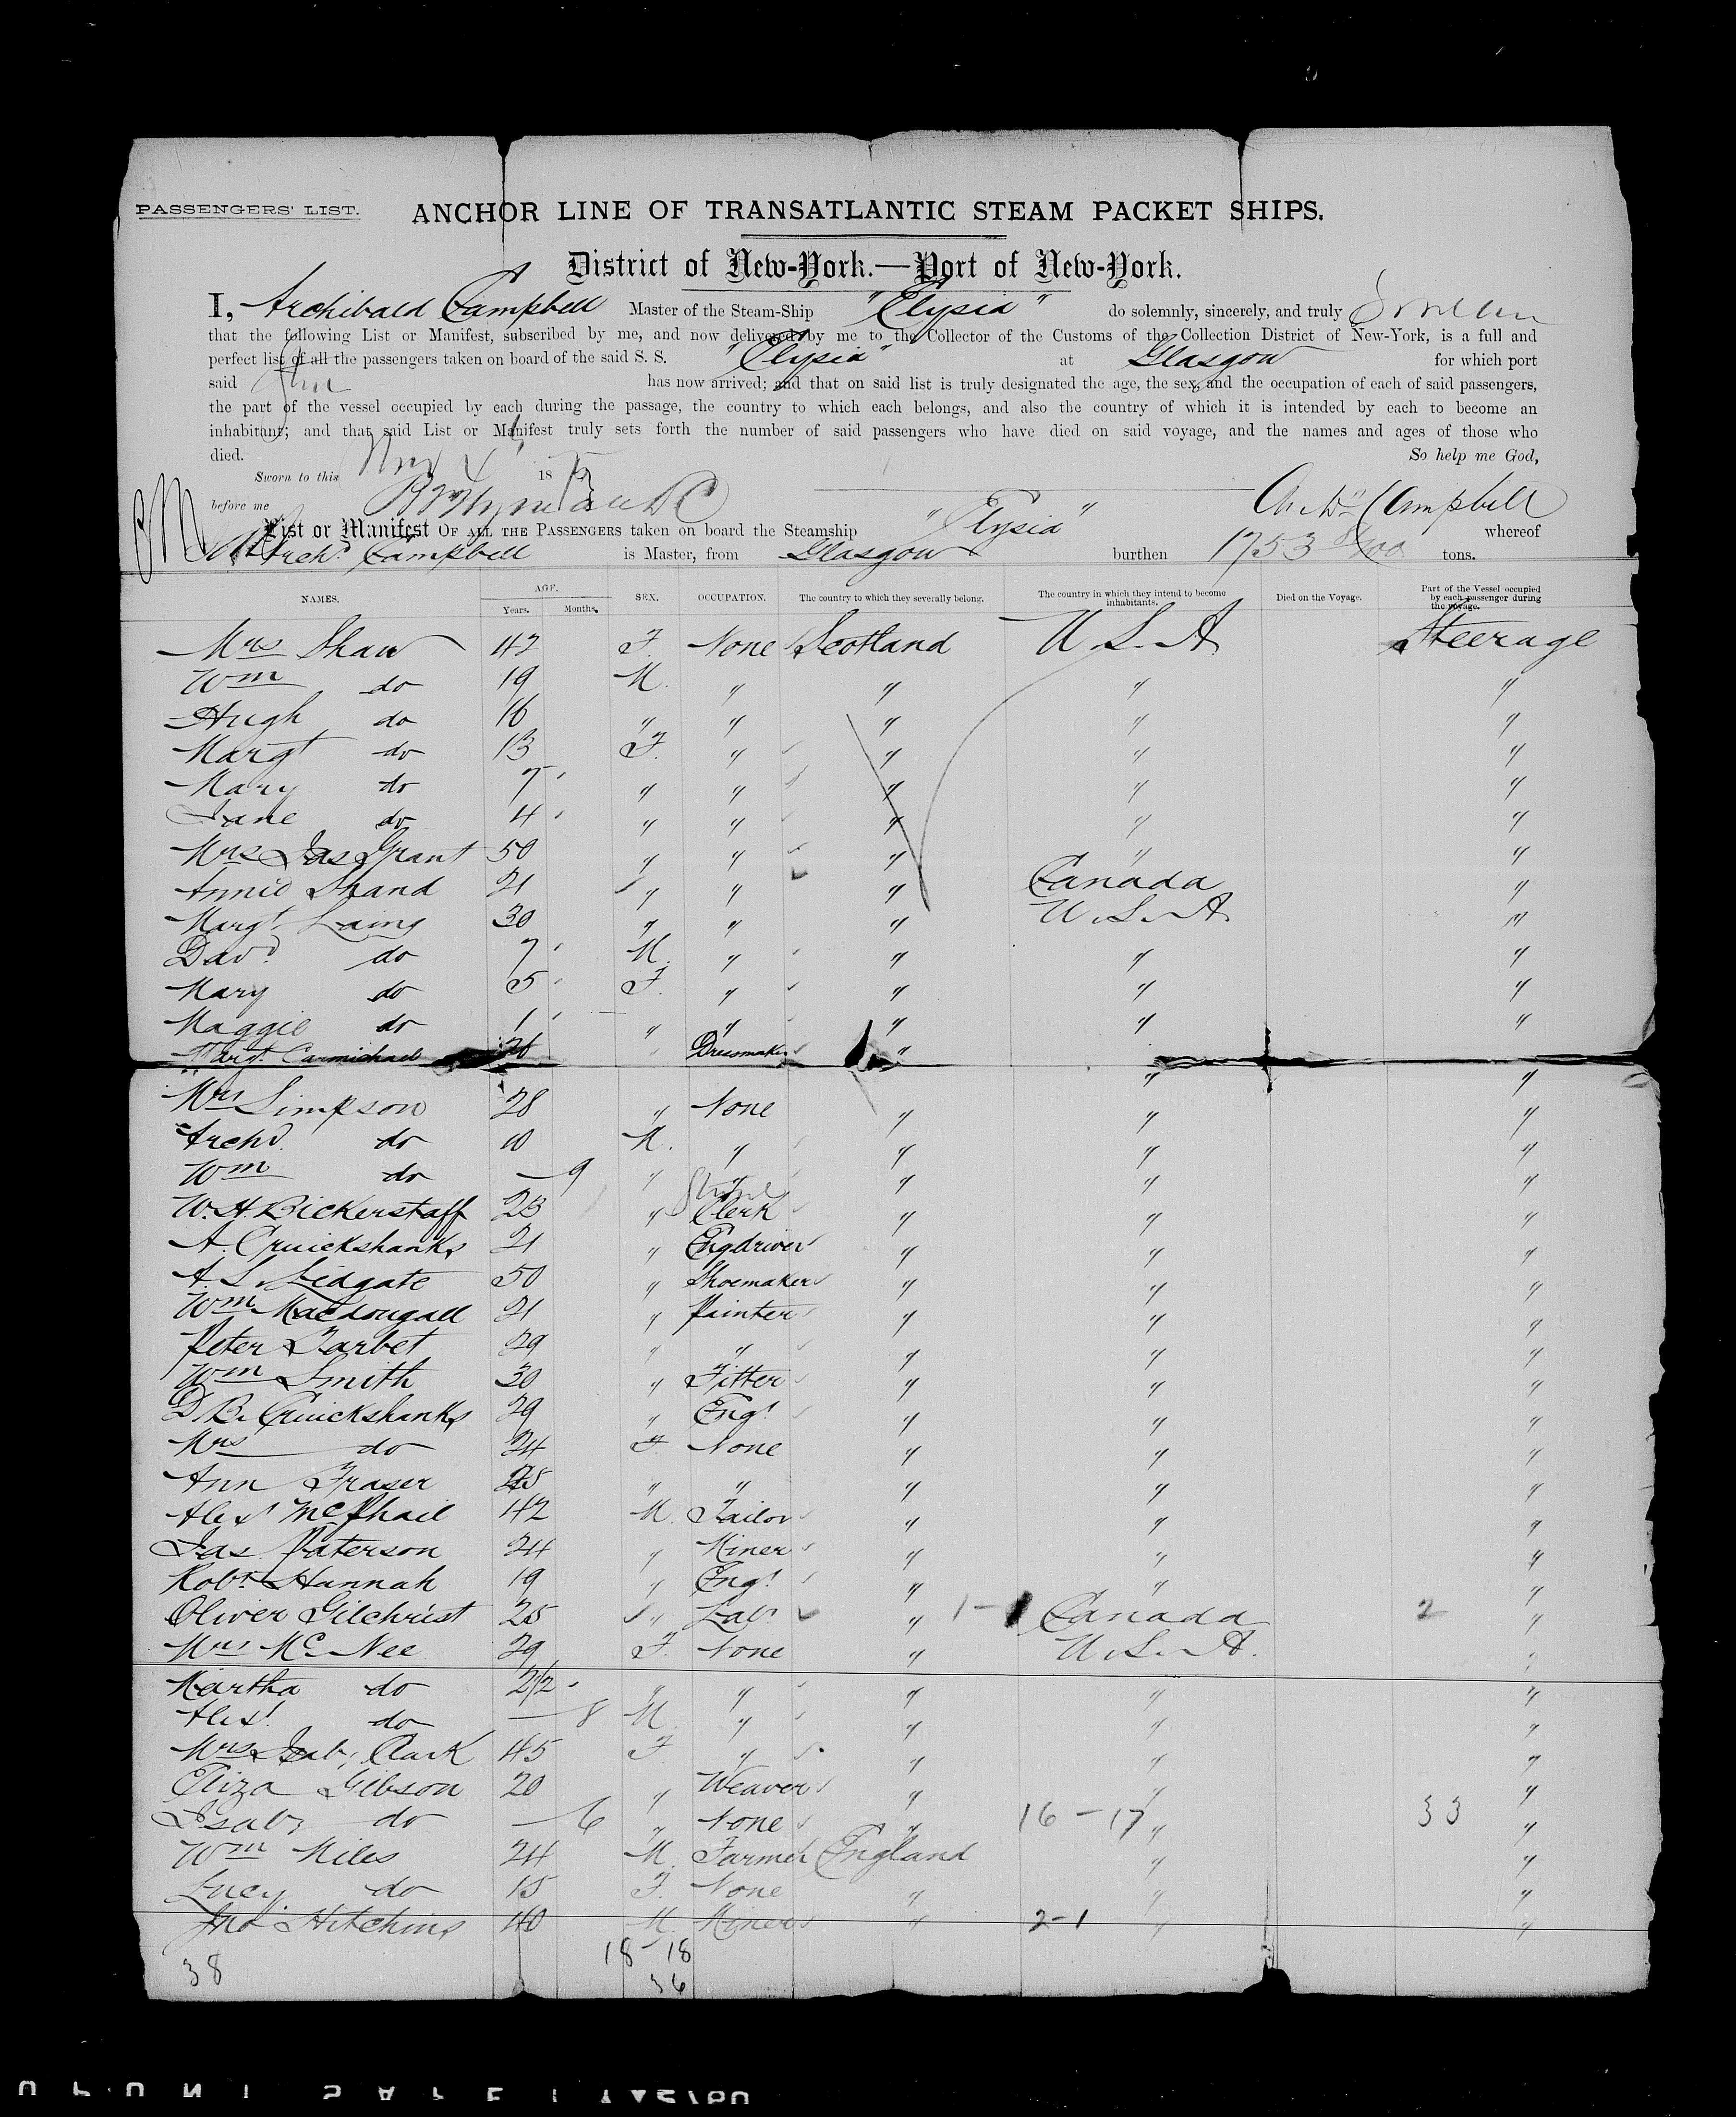 PASSENGERS' LIST. ANCHOR LINE OF TRANSATLANTIC STEAM PACKET SHIPS.
District of New-York.—Port of New-York.
I, Archibald Campbell Master of the Steam-Ship "Elysia" do solemnly, sincerely, and truly
that the following List or Manifest, subscribed by me, and now delivered by me to the Collector of the Customs of the Collection District of New-York, is a full and
perfect list of all the passengers taken on board of the said S. S. "Elysia" at Glasgow for which port
said has now arrived; and that on said list is truly designated the age, the sex, and the occupation of each of said passengers,
the part of the vessel occupied by each during the passage, the country to which each belongs, and also the country of which it is intended by each to become an
inhabitant; and that said List or Manifest truly sets forth the number of said passengers who have died on said voyage, and the names and ages of those who
died. So help me God,
Sworn to this 18
before me Archd Campbell
List or Manifest OF ALL THE PASSENGERS taken on board the Steamship "Elysia" whereof
Archd Campbell is Master, from Glasgow burthen 1753 tons.
NAMES. AGE. Years. Months. SEX. OCCUPATION. The country to which they severally belong. The country in which they intend to become inhabitants. Died on the Voyage. Part of the Vessel occupied by each passenger during the voyage.
Mrs Shaw 42 F. None Scotland U.S.A Steerage
Wm do 19 M. " " " "
Hugh do 16 " " " " "
Margt do 13 F. " " " "
Mary do 7 " " " " "
Jane do 4 " " " " "
Mrs Jas Grant 50 " " " " "
Annie Shand 21 " " " Canada "
Margt Laing 30 " " " U.S.A "
Davd do 7 M. " " " "
Mary do 5 F. " " " "
Maggie do 1 " " " " "
Margt Carmichael 26 Dressmaker " " "
Mrs Simpson 28 " None " " "
Archd. do 10 M. " " " "
Wm do — 9 " " " " "
W. H. Bickerstaff 23 " Clerk " " "
A. Cruickshanks 21 " Engdriver " " "
A. S. Lidgate 50 " Shoemaker " " "
Wm Macdougall 21 " Painter " " "
Peter Tarbet 29 " " " " "
Wm Smith 30 " Fitter " " "
D. B. Cruickshanks 29 " Engr " " "
Mrs do 24 F. None " " "
Ann Fraser 25 " " " " "
Alexr McPhail 42 M. Tailor " " "
Jas Paterson 24 " Miner " " "
Robt Hannah 19 " Engr " " "
Oliver Gilchrist 25 " Labr " 1-1 Canada 2 "
Mrs McNee 29 F. None " U.S.A. "
Martha do 2 1/2 " " " " "
Alexr do — 8 M. " " " "
Mrs Isab. Clark 45 F. " " " "
Eliza Gibson 20 " Weaver " " "
Isab. do — 6 " None " 16-17 " 33 "
Wm Miles 24 M. Farmer England " "
Lucy do 15 F. None " " "
Jno. Hitchins 40 M. Miner " 2-1 " "
38 18-18
36